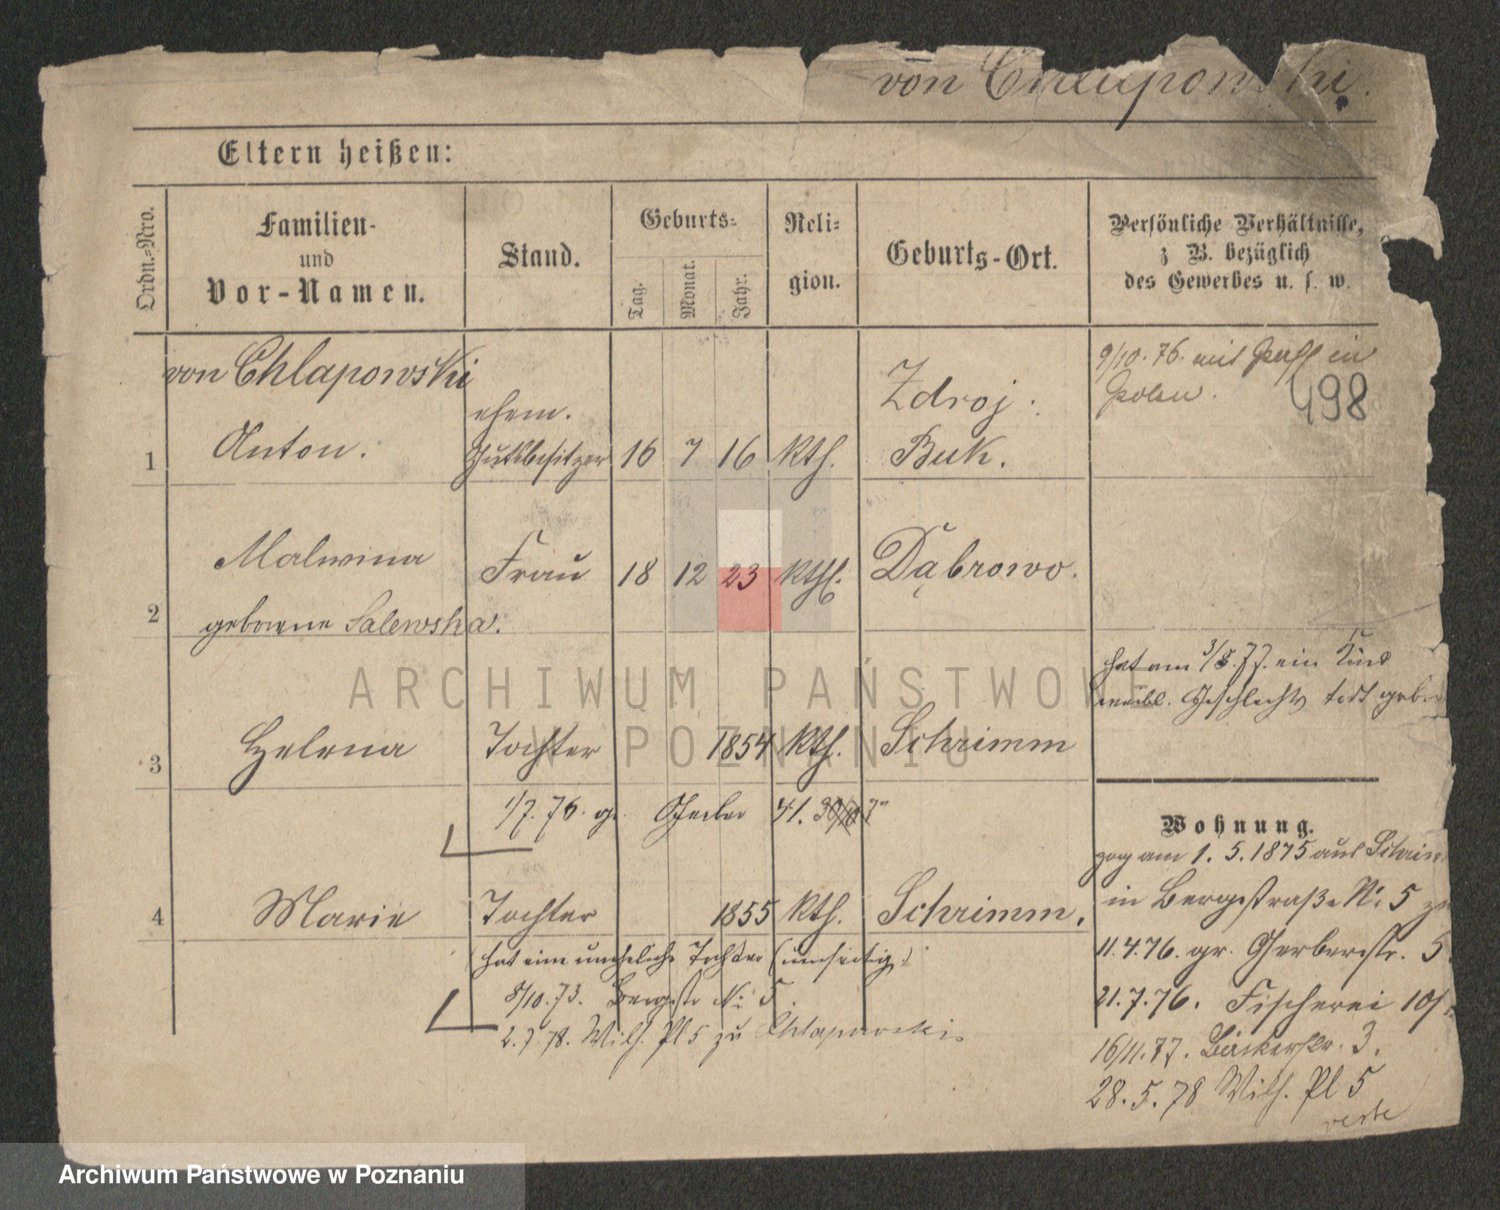 von Chlapowski.
Eltern heißen:
Ordn.=Nro.
Familien-
und
Vor-Namen.
Stand.
Geburts=
Tag.
Monat.
Jahr.
Reli=
gion.
Geburts-Ort.
Persönliche Verhältnisse,
z B. bezüglich
des Gewerbes u. s. w.
von Chlapowski
1 Anton.
ehem.
Gutsbesitzer
16 7 16 kth.
Zdroj.
Buk.
9/10. 76. mit Paß in
Polen.
498
Malwina
2 geborene Salewska.
Frau 18 12 23 kthl. Dąbrowo.
hat am 3/8. 77. ein Kind
weibl. Geschlechts todt geb
3 Helena Tochter 1854 kth. Schrimm
1/7. 76. gr. Gerber 41.
4 Marie Tochter 1855 kth. Schrimm.
(hat eine uneheliche Tochter (umseitig)
8/10. 73. Bergstr N: 5.
2. 7. 78. Wilh. Pl 5 zu Chlapowski.
Wohnung.
zog am 1. 5. 1875 aus Schrim
in Bergstraße N: 5
11. 4. 76. gr. Gerberstr. 5
21. 7. 76. Fischerei 10
16/11. 77. Bäckerstr. 3.
28. 5. 78 Wilh. Pl 5
verte
ARCHIWUM PAŃSTWOWE
W POZNANIU
Archiwum Państwowe w Poznaniu